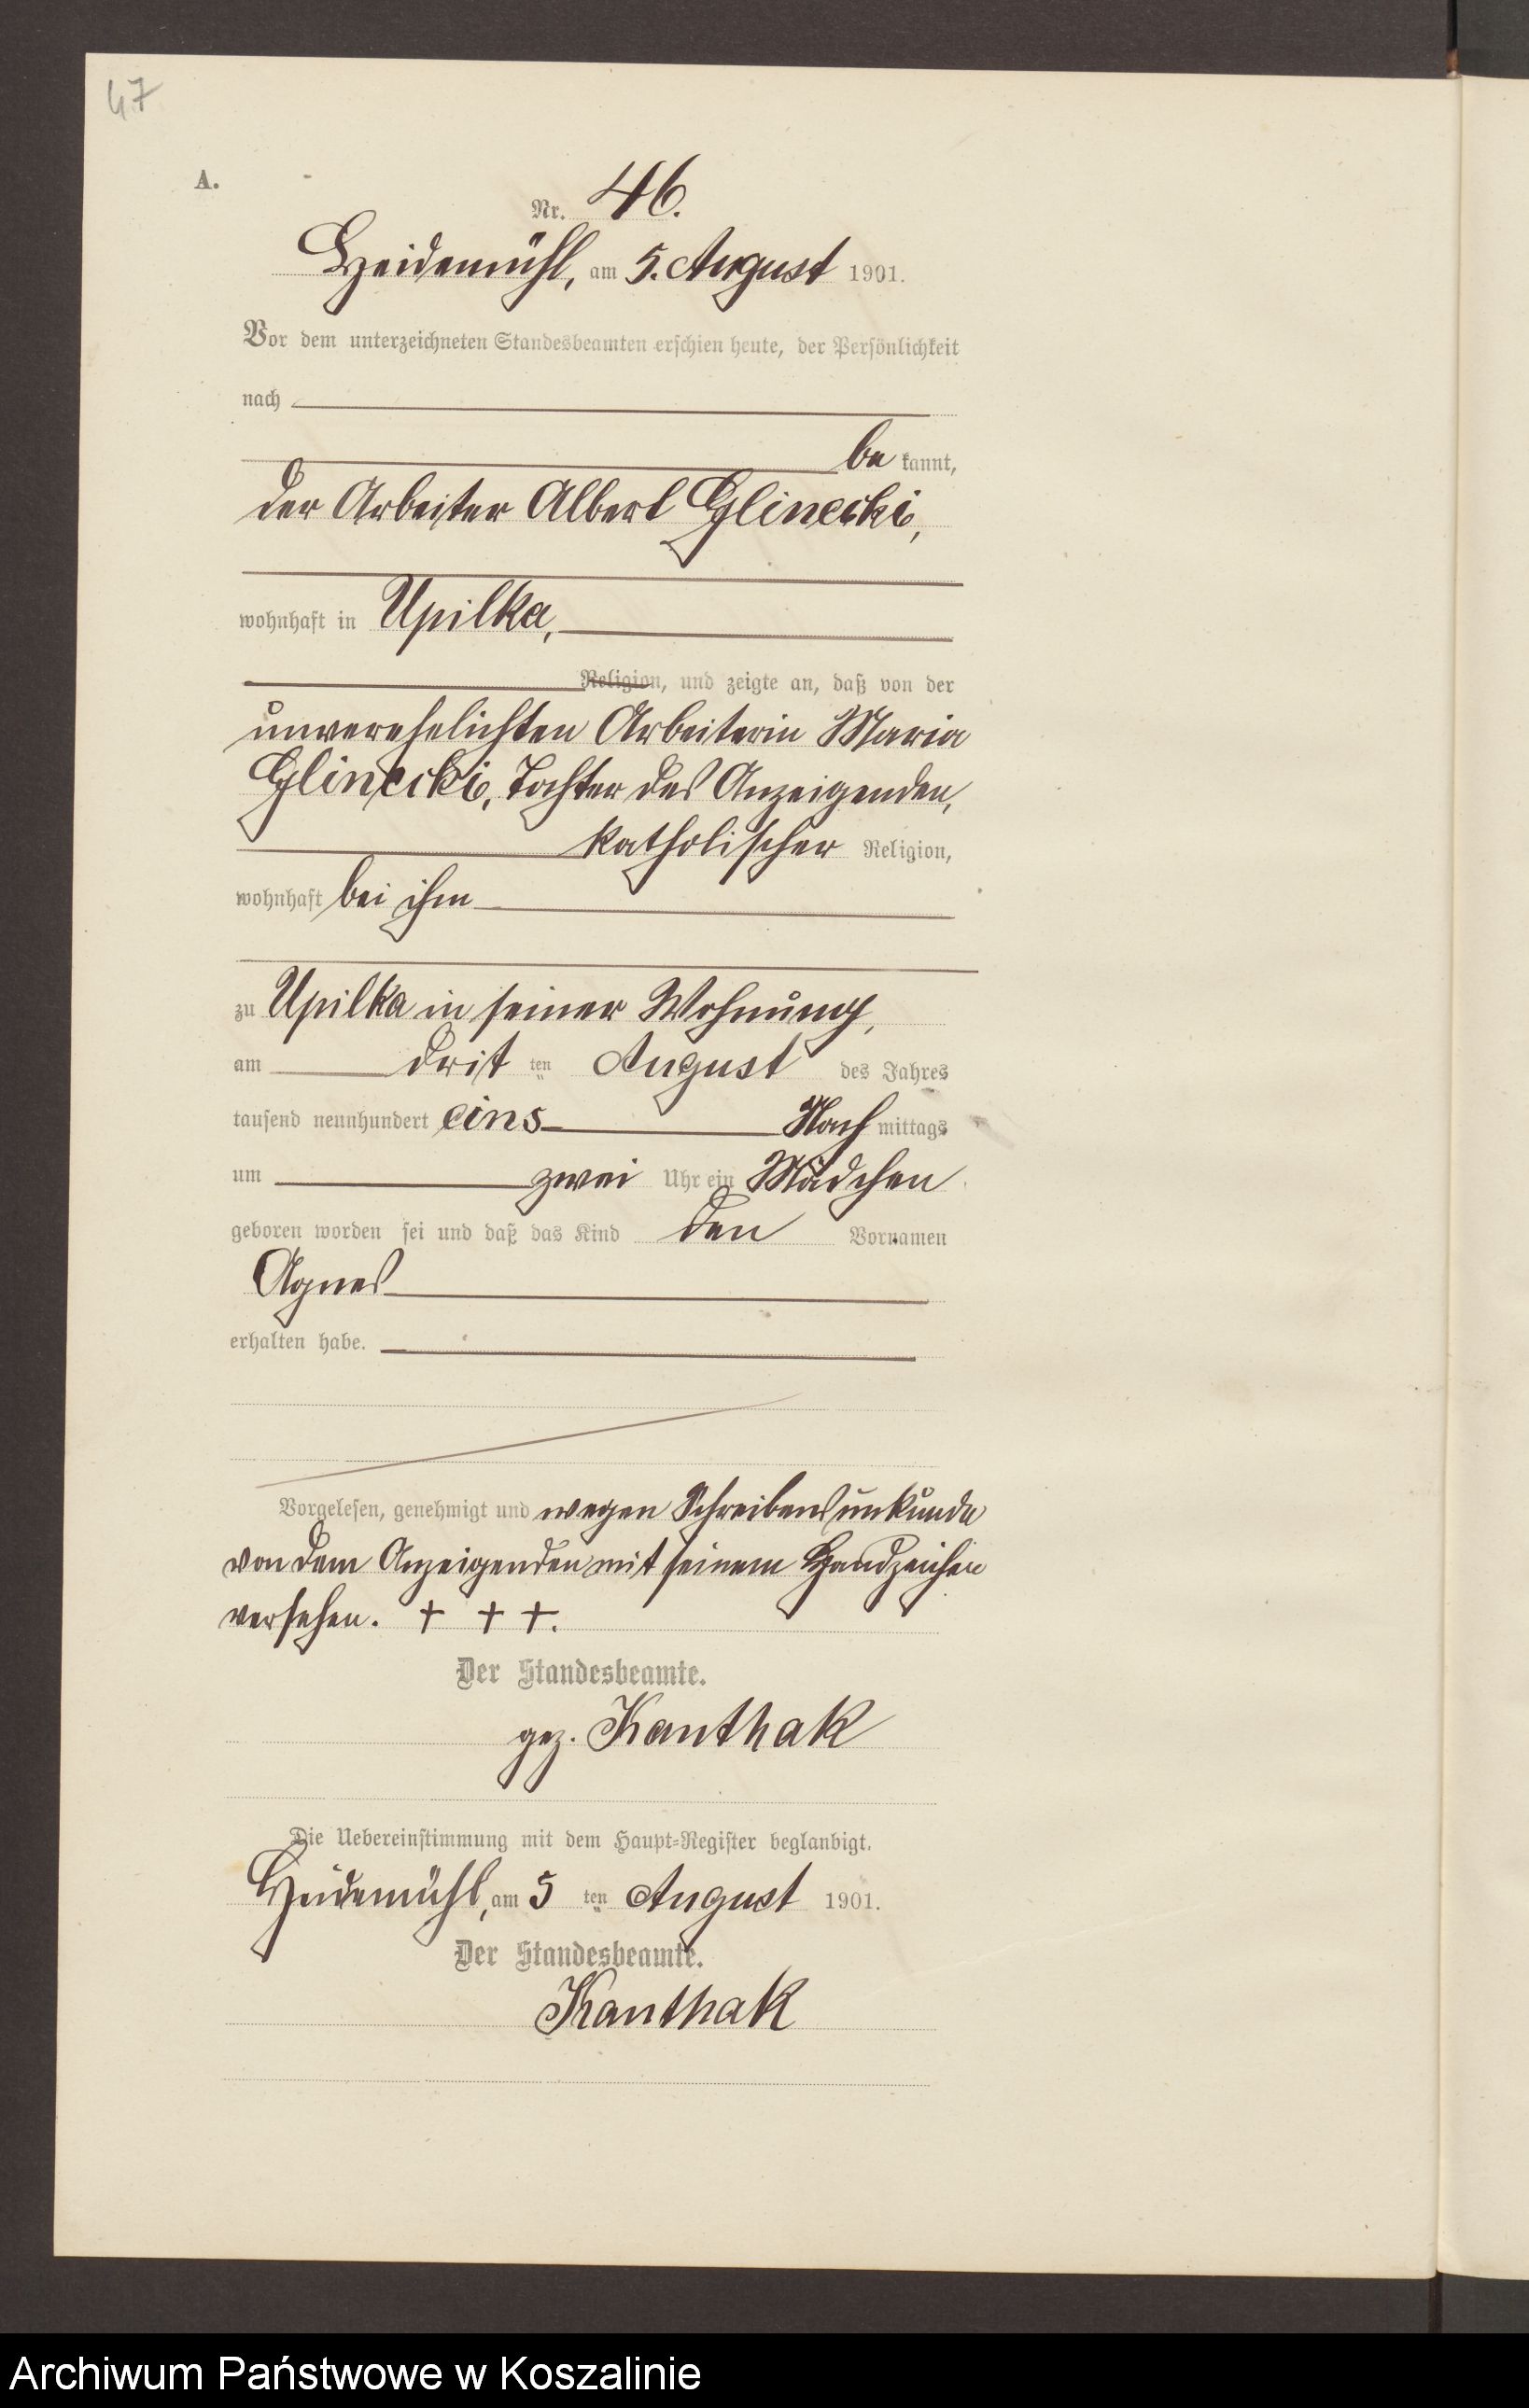 47
A.
Nr. 46.
Heidemühl, am 5. August 1901.
Vor dem unterzeichneten Standesbeamten erschien heute, der Persönlichkeit
nach
be kannt,
der Arbeiter Albert Glinecki,
wohnhaft in Upilka,
Religion, und zeigte an, daß von der
unverehelichten Arbeiterin Maria
Glinecki, Tochter des Anzeigenden,
katholischer Religion,
wohnhaft bei ihm
zu Upilka in seiner Wohnung,
am drit ten August des Jahres
tausend neunhundert eins Nach mittags
um zwei Uhr ein Mädchen
geboren worden sei und daß das Kind den Vornamen
Agnes
erhalten habe.
Vorgelesen, genehmigt und wegen Schreibensunkunde
von dem Anzeigenden mit seinem Handzeichen
versehen. + + +.
Der Standesbeamte.
gez. Kanthak
Die Uebereinstimmung mit dem Haupt-Register beglaubigt.
Heidemühl, am 5 ten August 1901.
Der Standesbeamte.
Kanthak
Archiwum Państwowe w Koszalinie